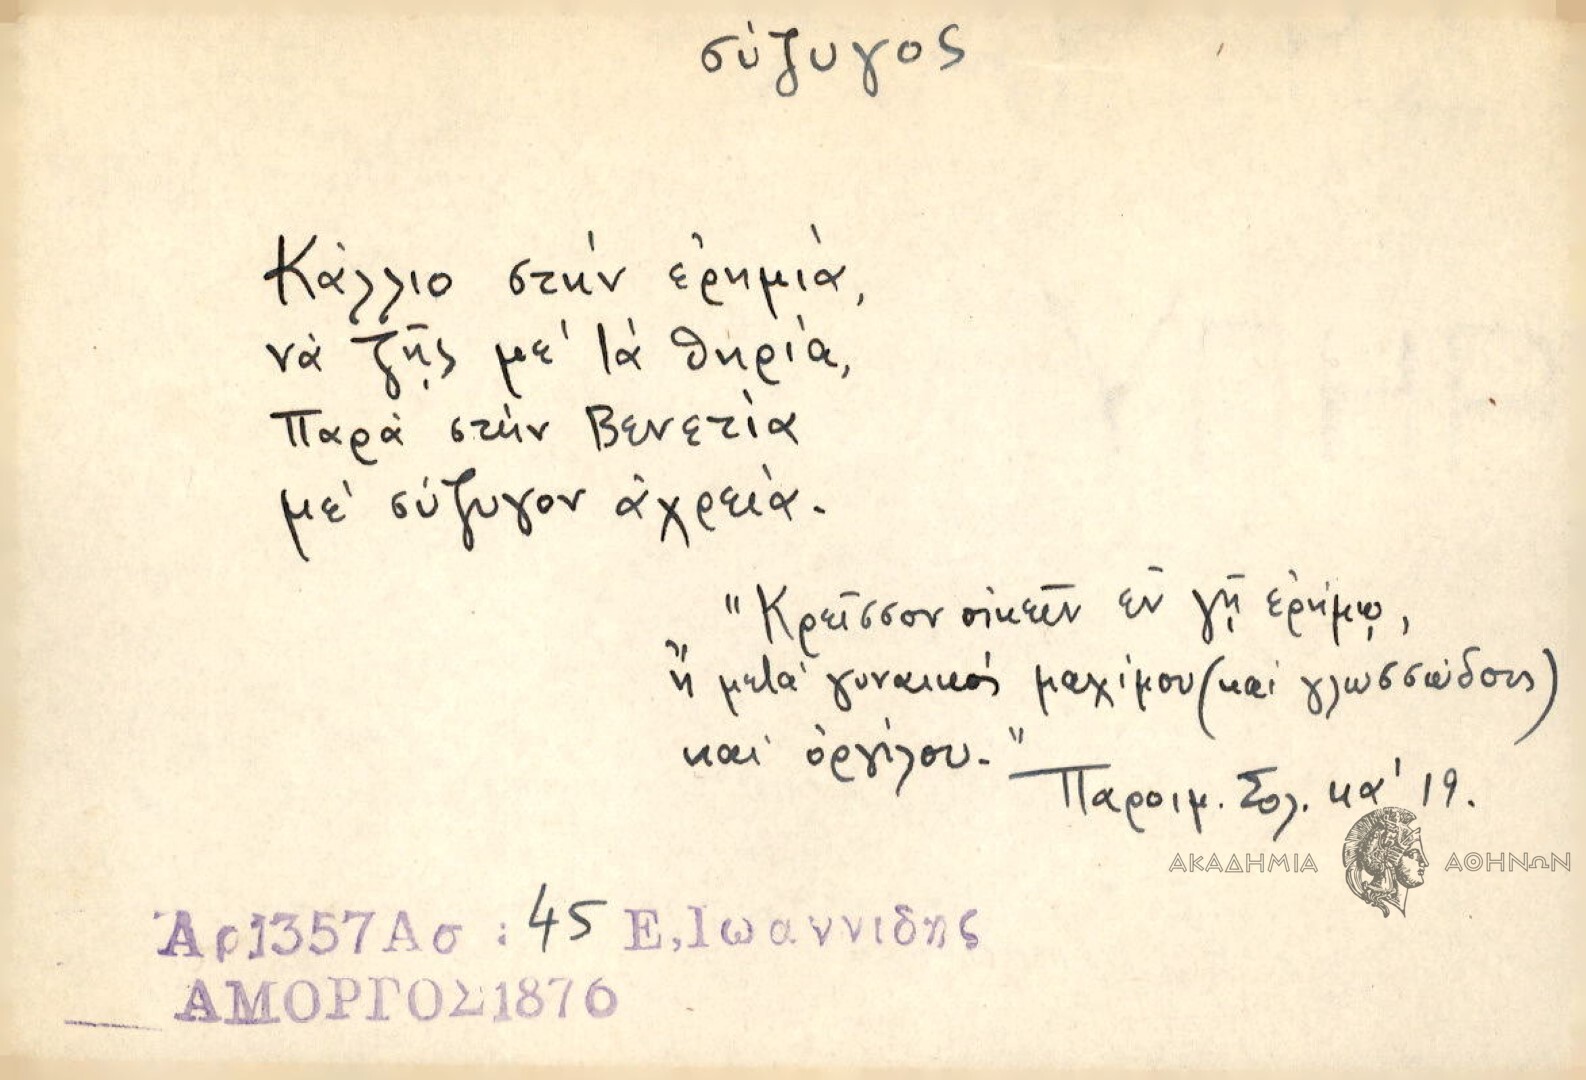 σύζυγος
Κάλλιο στήν ἐρημιά,
νά ζῇς μέ τά θηρία,
Παρά στήν Βενετία
μέ σύζυγον ἀχρεία.
"Κρεῖσσον οἰκεῖν ἐν γῇ ἐρήμῳ,
ἤ μετά γυναικός μαχίμου (καί γλωσσώδους)
καί ὀργίλου."
Παροιμ. Σολ. κα' 19.
ΑΚΑΔΗΜΙΑ ΑΘΗΝΩΝ
Ἀρ1357Ασ : 45 Ε,Ιωαννιδης
ΑΜΟΡΓΟΣ1876